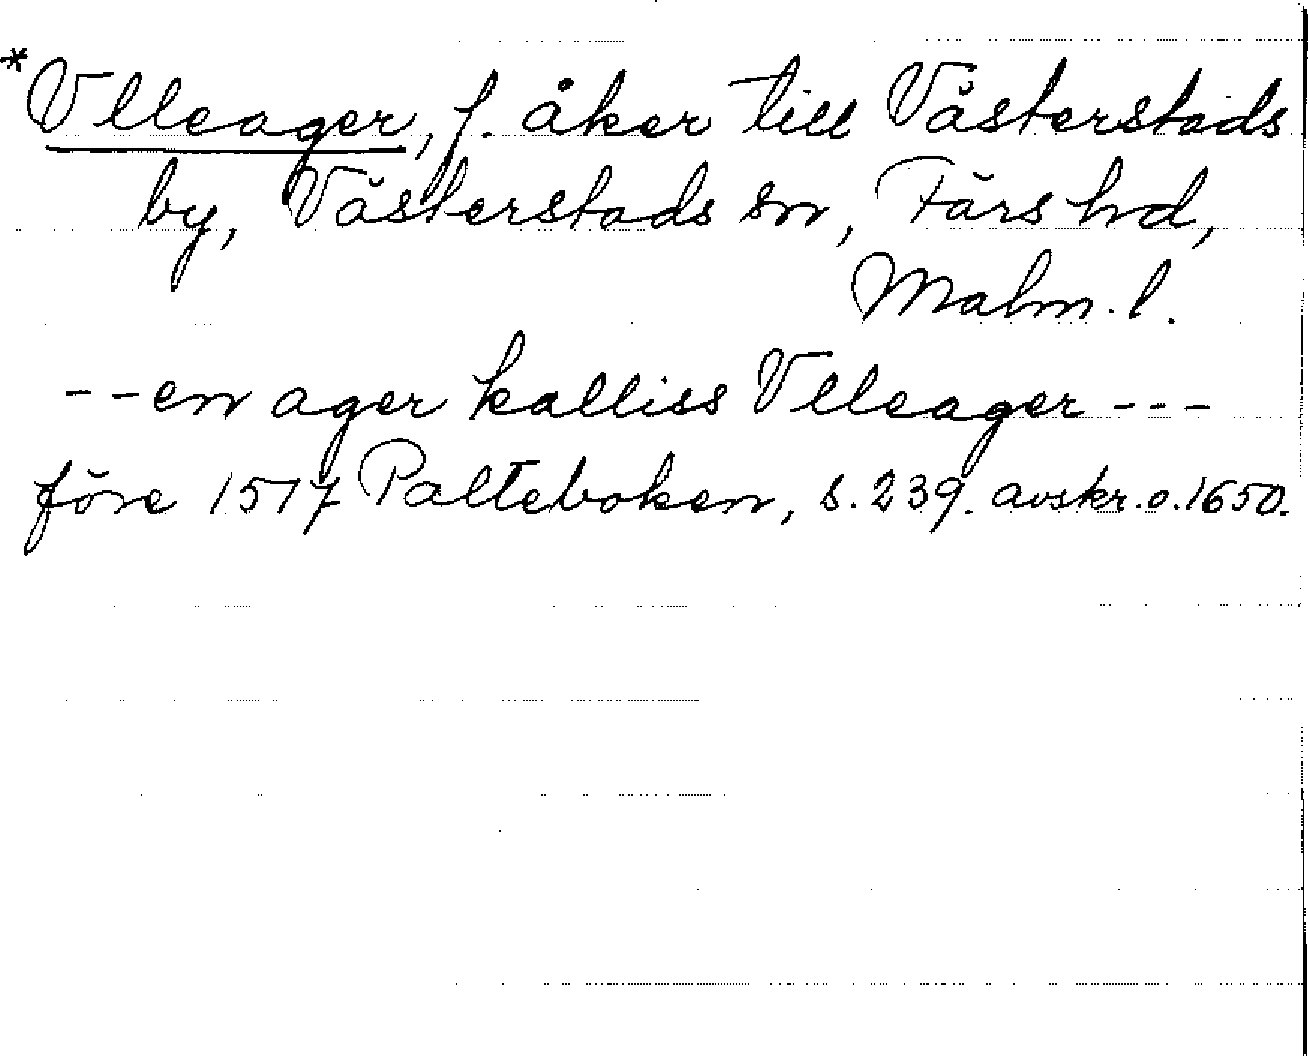 *Vlleager, f. åker till Västerstads
by, Västerstads sn, Färs hd,
Malm. l.
--en ager kalliss Vlleager---
före 1517 Palteboken, s. 239. avskr. o. 1650.